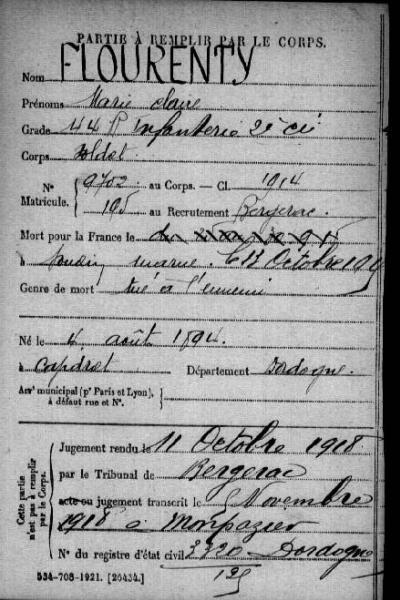 PARTIE À REMPLIR PAR LE CORPS.
Nom FLOURENTY
Prénoms Marie
Grade 44 Infanterie 2e Cie
Corps Soldat
N° Matricule. { 9702 au Corps. — Cl. 1914
195 au Recrutement Bergerac.
Mort pour la France le
à marne. le 13 Octobre
Genre de mort tué à l'ennemi
Né le 4 août 1894.
à Capdrot Département Dordogne.
Arrt municipal (pr Paris et Lyon), à défaut rue et N°.
Cette partie n'est pas à remplir par le Corps.
Jugement rendu le 11 Octobre 1918
par le Tribunal de Bergerac
acte ou jugement transcrit le 5 Novembre
1918 à Monpazier
N° du registre d'état civil Dordogne
534-708-1921. [26434.]